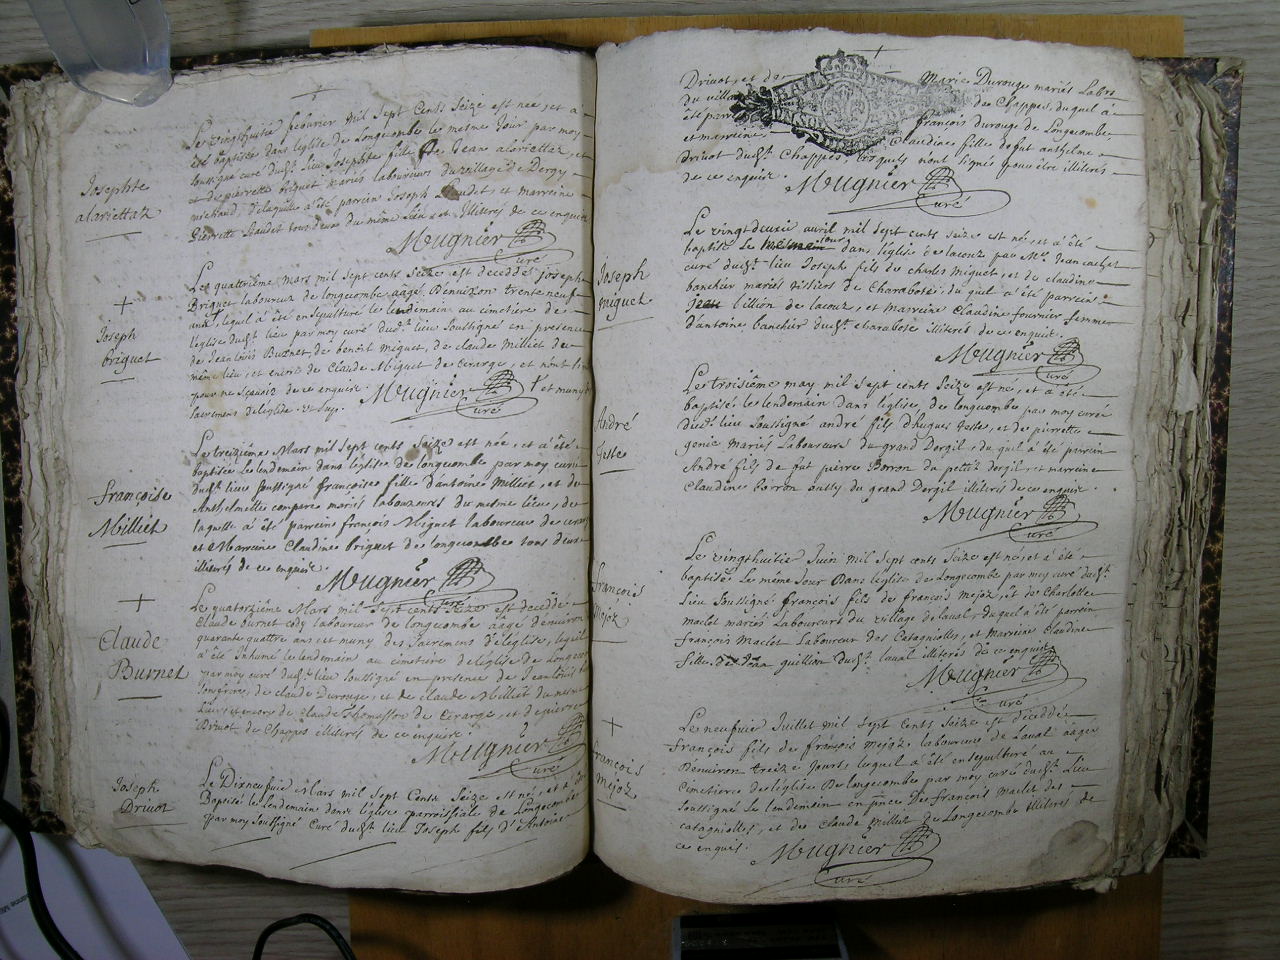 Josephte
alariettaz
Le vingthuitie febvrier mil sept cents seize est née, et a
été baptisée dans leglise de Longecombe le mesme Jour par moy
soussigné curé dud.t lieu Josephte fille de Jean alariettaz, et
et de pierrette briguet mariés laboureurs du village de Dergy
michaud, de laquelle a été parrain Joseph baudet, et marreine
Pierrette baudet tous deux du même lieu et Illiteres de ce enquis
Mugnier
curé
+
Joseph
briguet
Le quattriême mars mil sept cents seize est decedé joseph
Briguet laboureur de longecombe aagé Denviron trente neuf
ans, lequel a été ensepulturé le lendemain au cimetiere de
l'eglise dud.t lieu par moy curé dud.t lieu soussigné en presence
de Jean louis Burnet de benoit miguet, de claude Milliet du
même lieu, et encore de Claude Miguet de Cerarge, et n'ont signé
pour ne sçavoir de ce enquis. Mugnier et muny des
sacremens deleglise
curé
françoise
Milliet
Le treiziême Mars mil sept cents seize est née, et a été
baptisée le lendemain dans leglise de longecombe par moy curé
dud.t lieu soussigné françoise fille d'antoine Milliet, et de
Anthelmette compere mariés laboureurs du mesme lieu, de
laquelle a été parrein françois Miguet laboureur de cerarge
et Marreine Claudine briguet de longecombe tous deux
illiterés de ce enquis.
Mugnier
curé
+
Claude
Burnet
Le quatorziême Mars mil sept cents seize est decedé
Claude burnet laboureur de longecombe aagé denviron
quarante quattre ans et muny des sacremens de léglise, lequel
a été Inhumé le lendemain au cimetiere de leglise de Longecombe
par moy curé dud.t lieu soussigné en presence de Jean louis
de claude Durouge, et de claude Milliet du mesme
Lieu et encore de claude Thomasson de Cerarge, et de pierre
Drivot de Chappes illiteres de ce enquis.
Mugnier
curé
Joseph
Drivot
Le Dixneufvie Mars mil sept Cents Seize est né, et a été
Baptisé le lendemain dans léglise parroissiale de Longecombe
par moy soussigné Curé dud.t lieu Joseph fils d'Antoine
Drivot, et de Marie Durouge mariés Labou
du villa de Chappes, duquel a
été parr françois durouge de Longecombe,
et marreine Claudine fille de fut anthelme
drivot dud.t Chappes, lesquels n'ont signé pour être illiterés
de ce enquis.
Mugnier
curé
Joseph
miguet
Le vingtdeuxie avril mil sept cents seize est né, et a été
baptisé le jour dans l'église de lacoux par M.re Jean
curé dud.t lieu Joseph fils de charles Miguet, et de claudine
bancher mariés de Charabote, duquel a été parrein
lillion de lacoux, et marreine Claudine fournier femme
d'antoine bancher dud.t charabote illiteres de ce enquis.
Mugnier
curé
André
Teste
Le troisiême may mil sept cents seize est né, et a été
baptisé le lendemain dans l'église de longecombe par moy curé
dud.t lieu soussigné andré fils d'hugues Teste, et de pierrette
genie mariés Laboureurs du grand Dorgil, duquel a été parrein
André fils de fut pierre Borron du petit dorgil, et marreine
Claudine borron aussy du grand Dorgil illiterés de ce enquis.
Mugnier
curé
françois
mejoz
Le vingthuitie Juin mil sept cents seize est né, et a été
baptisé le même Jour Dans leglise de Longecombe par moy curé dud.t
Lieu soussigné françois fils de françois mejoz, et de Charlotte
maclet mariés Laboureurs du village de laval, duquel a été parrein
françois Maclet Laboureur des Catagnolles, et marreine Claudine
fille guillion dud.t laval illiterés de ce enquis
Mugnier
curé
+
françois
mejoz
Le neufvie Juillet mil sept Cents Seize est décédé
françois fils de françois mejoz laboureur de Laval aagé
Denviron treize Jours, lequel a été ensepulturé au
cimetiere de leglise de longecombe par moy curé dud.t Lieu
soussigné le lendemain en pnce de françois maclet des
catagniolles, et de claude milliet de Longecombe illiteres de
ce enquis.
Mugnier
curé